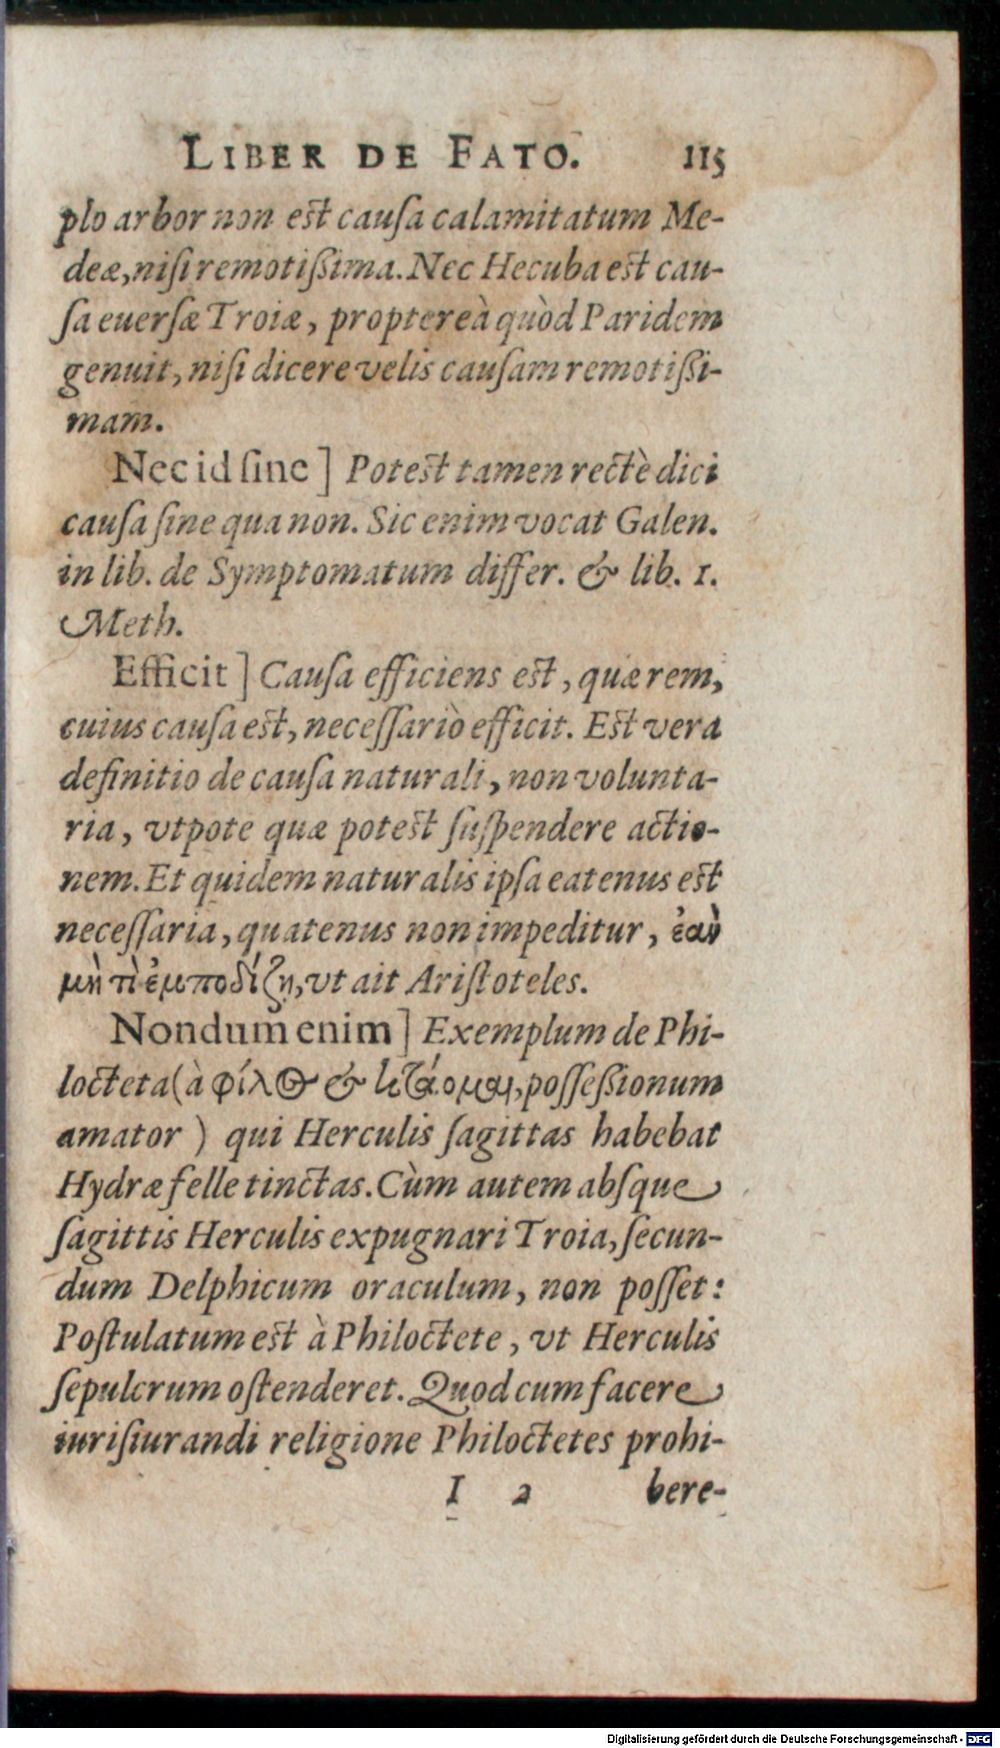 LIBER DE FATO. 115
plo arbor non est causa calamitatum Me-
deæ, nisi remotißima. Nec Hecuba est cau-
ſa euerſæ Troiæ, propterea quòd Paridem
genuit, niſi dicere velis cauſam remotißi-
mam.
Nec id ſine ] Potest tamen rectè dici
cauſa ſine qua non. Sic enim vocat Galen.
in lib. de Symptomatum differ. & lib. 1.
Meth.
Efficit ] Cauſa efficiens est, quæ rem,
cuius cauſa est, neceſſariò efficit. Est vera
definitio de cauſa naturali, non volunta-
ria, vtpote quæ potest ſuſpendere actio-
nem. Et quidem naturalis ipſa eatenus est
neceſſaria, quatenus non impeditur, ἐὰν
μὴ τὶ ἐμποδίζῃ, vt ait Ariſtoteles.
Nondum enim ] Exemplum de Phi-
locteta (à φίλος & κτάομαι, poſſeßionum
amator ) qui Herculis ſagittas habebat
Hydræ felle tinctas. Cùm autem abſque
ſagittis Herculis expugnari Troia, ſecun-
dum Delphicum oraculum, non poſſet:
Poſtulatum est à Philoctete, vt Herculis
ſepulcrum oſtenderet. Quod cum facere
iuriſiurandi religione Philoctetes prohi-
I 2 bere-
Digitalisierung gefördert durch die Deutsche Forschungsgemeinschaft - DFG